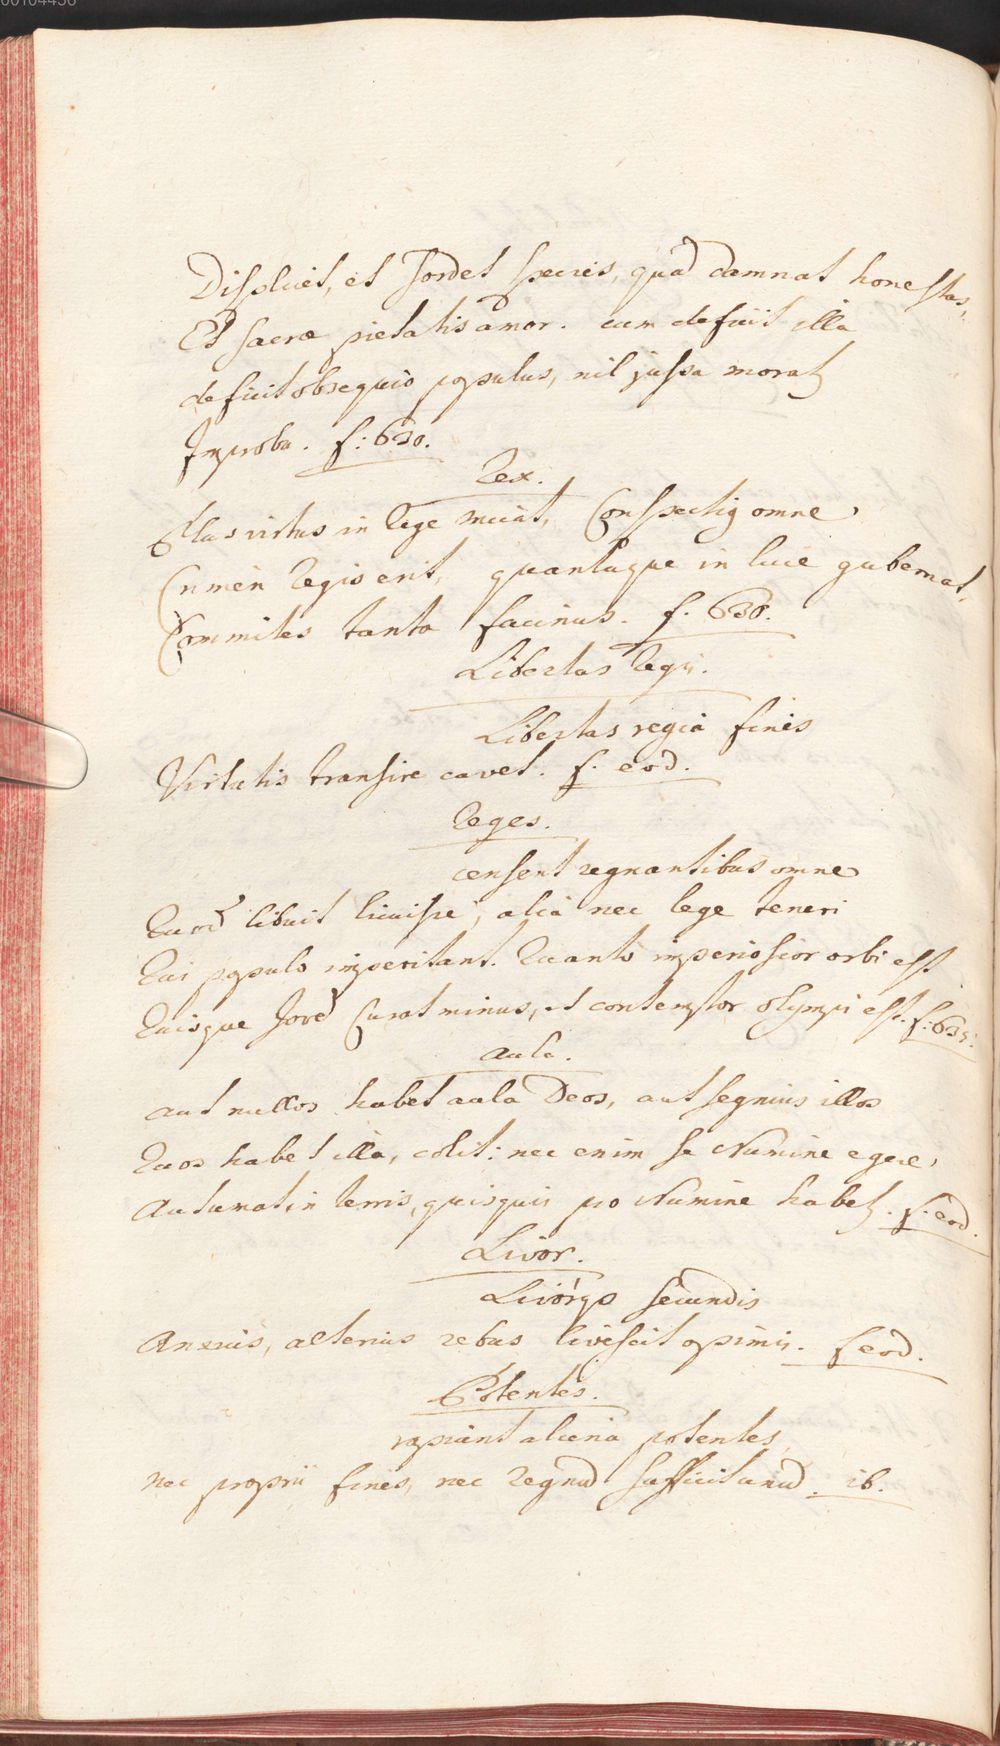 Displicet, et sordet species, quā damnat honestas,
Et sacræ pietatis amor. cum defuit illa
deficit obsequio populus, nil jussa moratʒ
Improba. f: 630.
Rex.
Plus virtus in Rege micat, Conspectiꝯ omne
Crimen Regis erit, quantaque in luce gubernat,
Committes tanto facinus. f. 630.
Libertas Regii.
Libertas regia fines
Virtutis transire cavet. f. eod.
Reges.
censent regnantibus omne
Quod libuit licuisse, alia nec lege teneri
Qui populo imperitant. Quanto imperiosior orbi est
Quisque Jovē Curat minus, et contemptor olympi est. f. 635.
Aula.
aut nullos habet aula Deos, aut segnius illos
Quos habet illa, colit: nec enim se Numine egere
Autumat in terris, quisquis pro Numine habetʒ. f. eod.
Livor.
Livor secundis
Anxius, alterius rebus livescit opimis. f eod.
Potentes.
rapiunt aliena potentes,
nec proprii fines, nec regnū sufficit unū. ib.